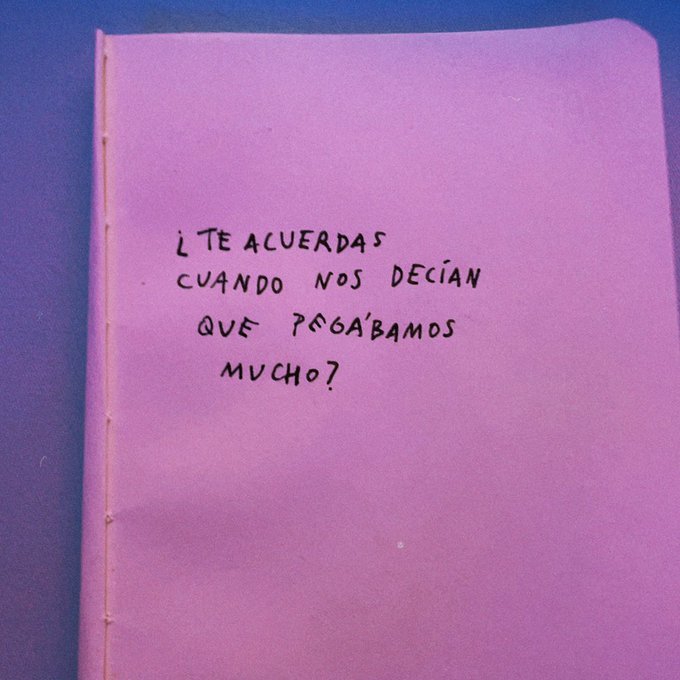 ¿TE ACUERDAS
CUANDO NOS DECÍAN
QUE PEGÁBAMOS
MUCHO?